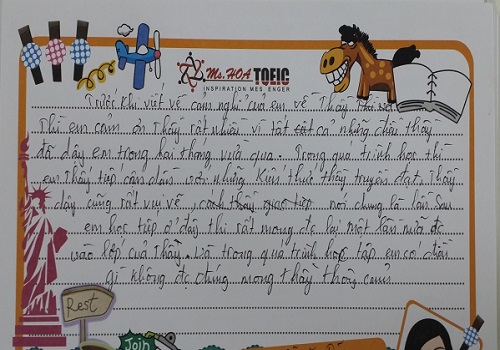 Ms.HOA TOEIC
INSPIRATION MESSENGER
Trước khi viết về cảm nghĩ của em về Thầy thì
Thì em cảm ơn Thầy rất nhiều vì tất cả những điều thầy
đã dậy em trong hai tháng vừa qua. Trong quá trình học thì
em Thấy tiếp cận dần với những kiến thức thầy truyền đạt. Thầy
dậy cũng rất vui vẻ, cách thầy giao tiếp nói chung là lần sau
em học tiếp ở đây thì rất mong đc lại một lần nữa đc
vào lớp của Thầy. Và trong quá trình học tập em có điều
gì không đc đúng mong thầy thông cảm
Rest
Join